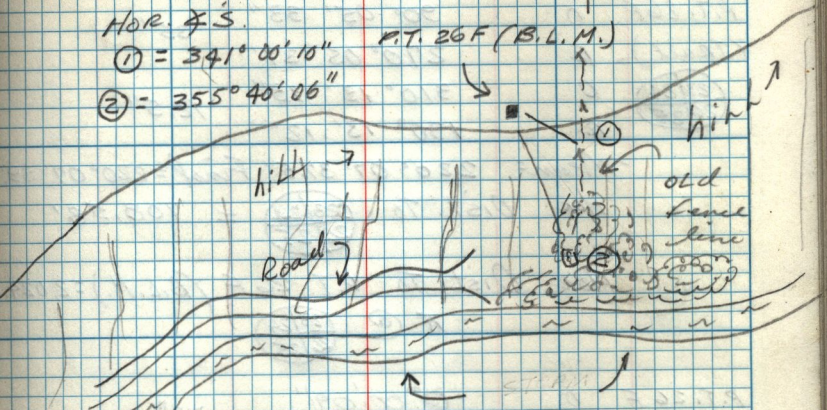 HOR. ∡'S.
① = 341° 00' 10"
② = 355° 40' 06"
P.T. 26F (B.L.M.)
hill
①
hill
OLD
fence
line
Road
②